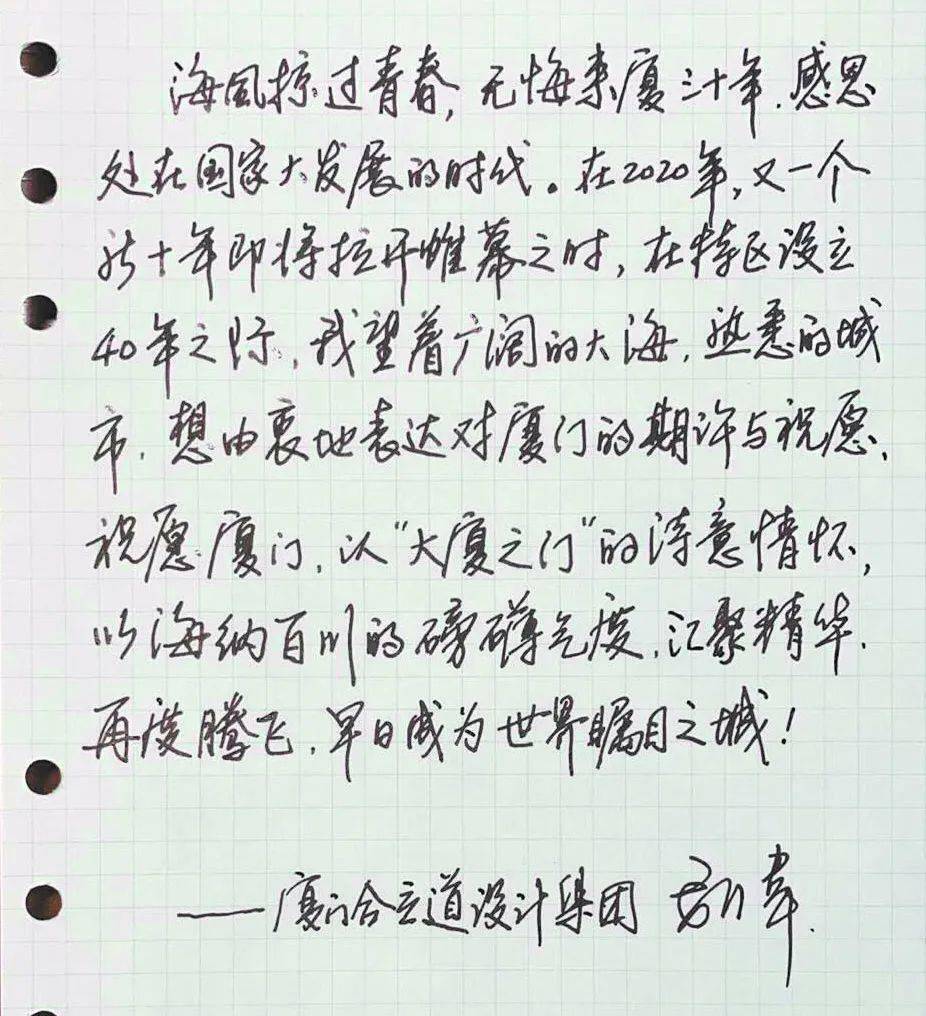 海風掠过青春,无悔来厦三十年.感恩
处在国家大发展的时代。在2020年,又一个
新十年即将拉开帷幕之时,在特区设立
40年之际,我望着广阔的大海,熟悉的城
市,想由衷地表达对厦门的期许与祝愿,
祝愿厦门,以“大厦之门”的诗意情怀,
以海纳百川的磅礴气度,汇聚精华,
再度腾飞,早日成为世界瞩目之城!
——厦门合立道设计集团